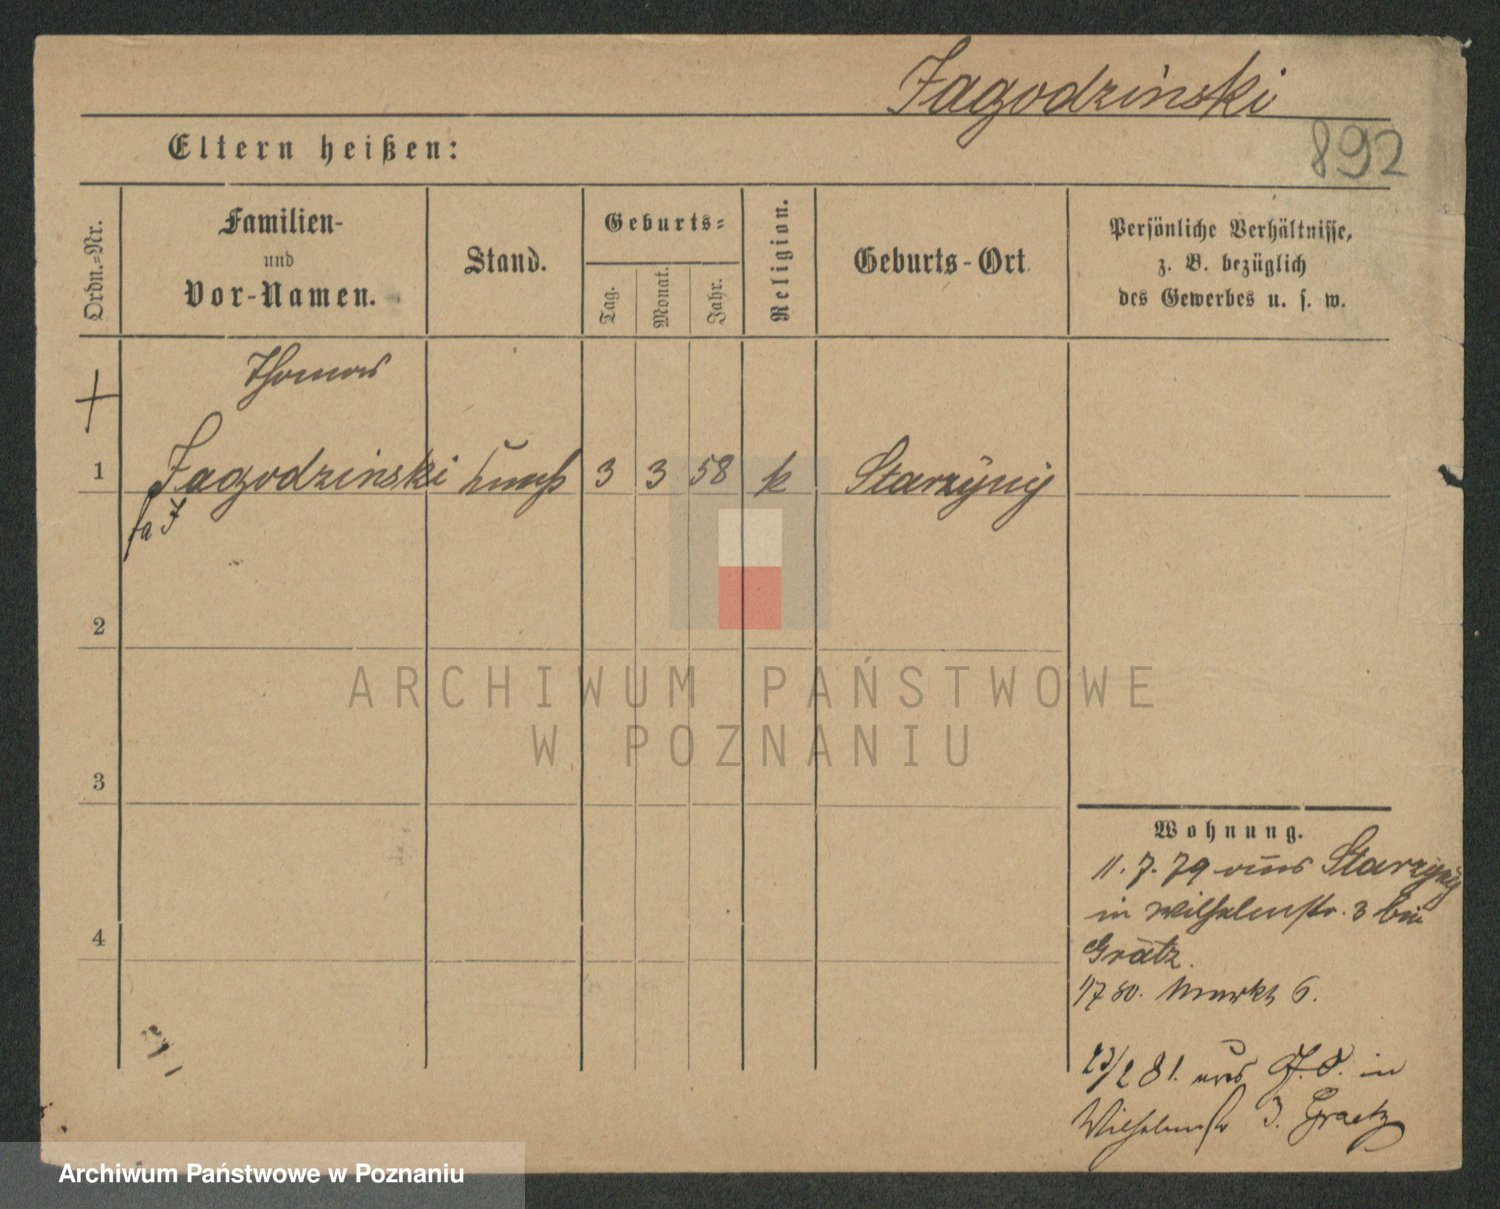 Jagodziński
892
Eltern heißen:
Ordn.-Nr.
Familien-
und
Vor-Namen.
Stand.
Geburts-
Tag.
Monat.
Jahr.
Religion.
Geburts-Ort.
Persönliche Verhältnisse,
z. B. bezüglich
des Gewerbes u. s. w.
Thomas
1 Jagodzinski 3 3 58 k Starzyny
2
3
4
Wohnung.
11.7.79 aus Starzyny
in Wilhelmstr. 3 bei
Grätz.
1/7 80. Markt 6.
aus in
Wilhelmstr 3. Graetz
ARCHIWUM PAŃSTWOWE
W POZNANIU
Archiwum Państwowe w Poznaniu